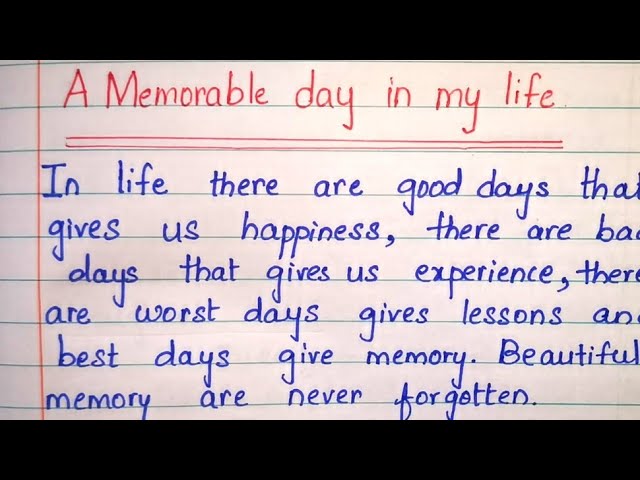 A Memorable day in my life
In life there are good days that
gives us happiness, there are bad
days that gives us experience, there
are worst days gives lessons and
best days give memory. Beautiful
memory are never forgotten.